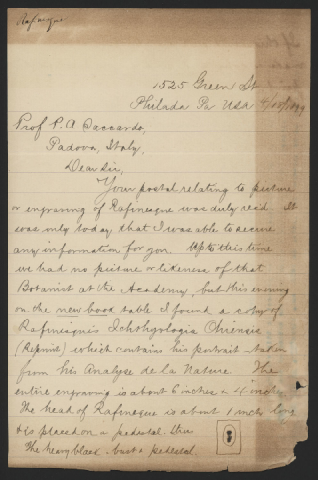 Rafinesque
1525 Green St
Philada Pa USA
Prof P. A. Saccardo,
Padova, Italy,
Dear Sir,
Your postal relating to picture
or engraving of Rafinesque was duly recd. It
was only today, that I was able to secure
any information for you. Up to this time
we had no picture or likeness of that
Botanist at the Academy, but this evening
on the new book table I found a copy of
Rafinesque's Ichthyologia Ohiensis
(Reprint) which contains his portrait taken
from his Analyse de la Nature. The
entire engraving is about 6 inches x 4 inches
The head of Rafinesque is about 1 inch long
& is placed on a pedestal thus
The heavy black bust & pedestal